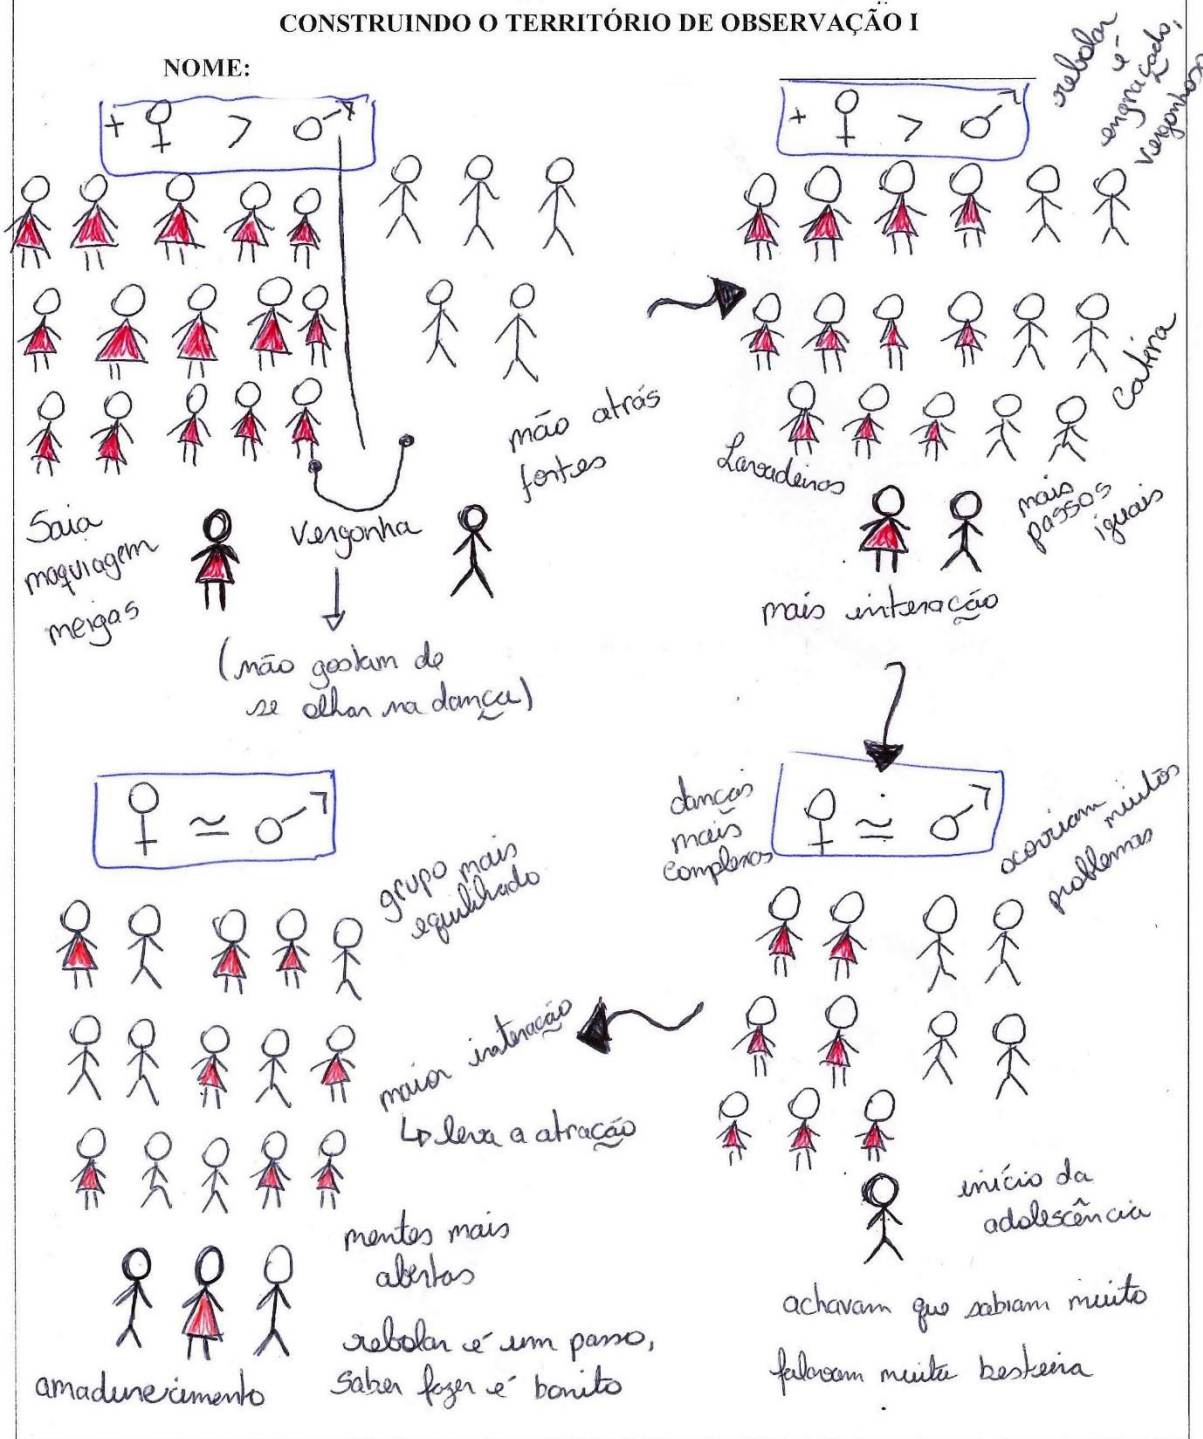 CONSTRUINDO O TERRITÓRIO DE OBSERVAÇÃO I
NOME:
+ ♀ > ♂
Saia
maquiagem
meigas
vergonha
(não gostam de
se olhar na dança)
mão atrás
fortes
+ ♀ > ♂
rebolar
é
engraçado,
vergonhoso
Lavadeiras
catira
mais
passos
iguais
mais interação
♀ ≃ ♂
danças
mais
complexas
ocorriam muitos
problemas
início da
adolescência
achavam que sabiam muito
falavam muita besteira
♀ ≃ ♂
grupo mais
equilibrado
maior interação
↳ leva a atração
mentes mais
abertas
rebolar é um passo,
saber fazer é bonito
amadurecimento